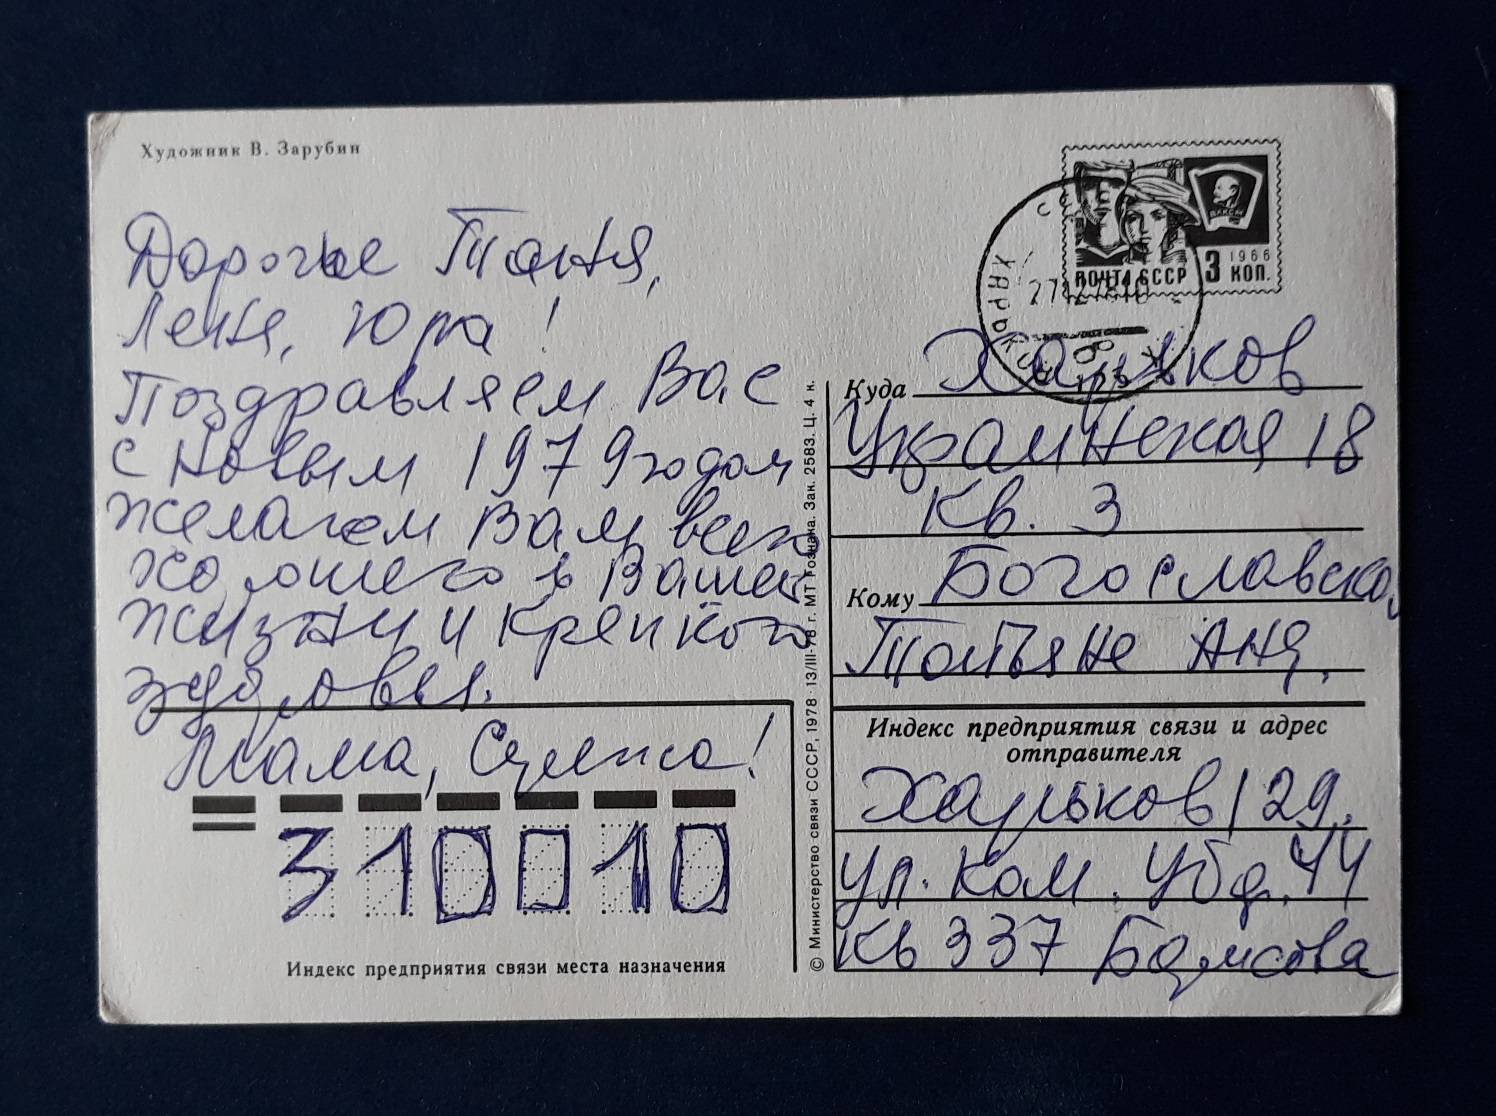 Художник В. Зарубин
Дорогие Таня,
Леня, Юра!
Поздравляем Вас
с Новым 1979 годом
желаем Вам всего
хорошего в Вашей
жизни и крепкого
здоровья.
Мама,
310010
Индекс предприятия связи места назначения
© Министерство связи СССР, 1978 · 13/III-78 г. МТ Гознака. Зак. 2583. Ц. 4 к.
ВЛКСМ
1966
ПОЧТА СССР 3 КОП.
27 12 78
Куда Харьков
Украинская 18
кв. 3
Кому Богославско
Татьяне
Индекс предприятия связи и адрес
отправителя
Харьков 129.
ул. Ком.
кв 337